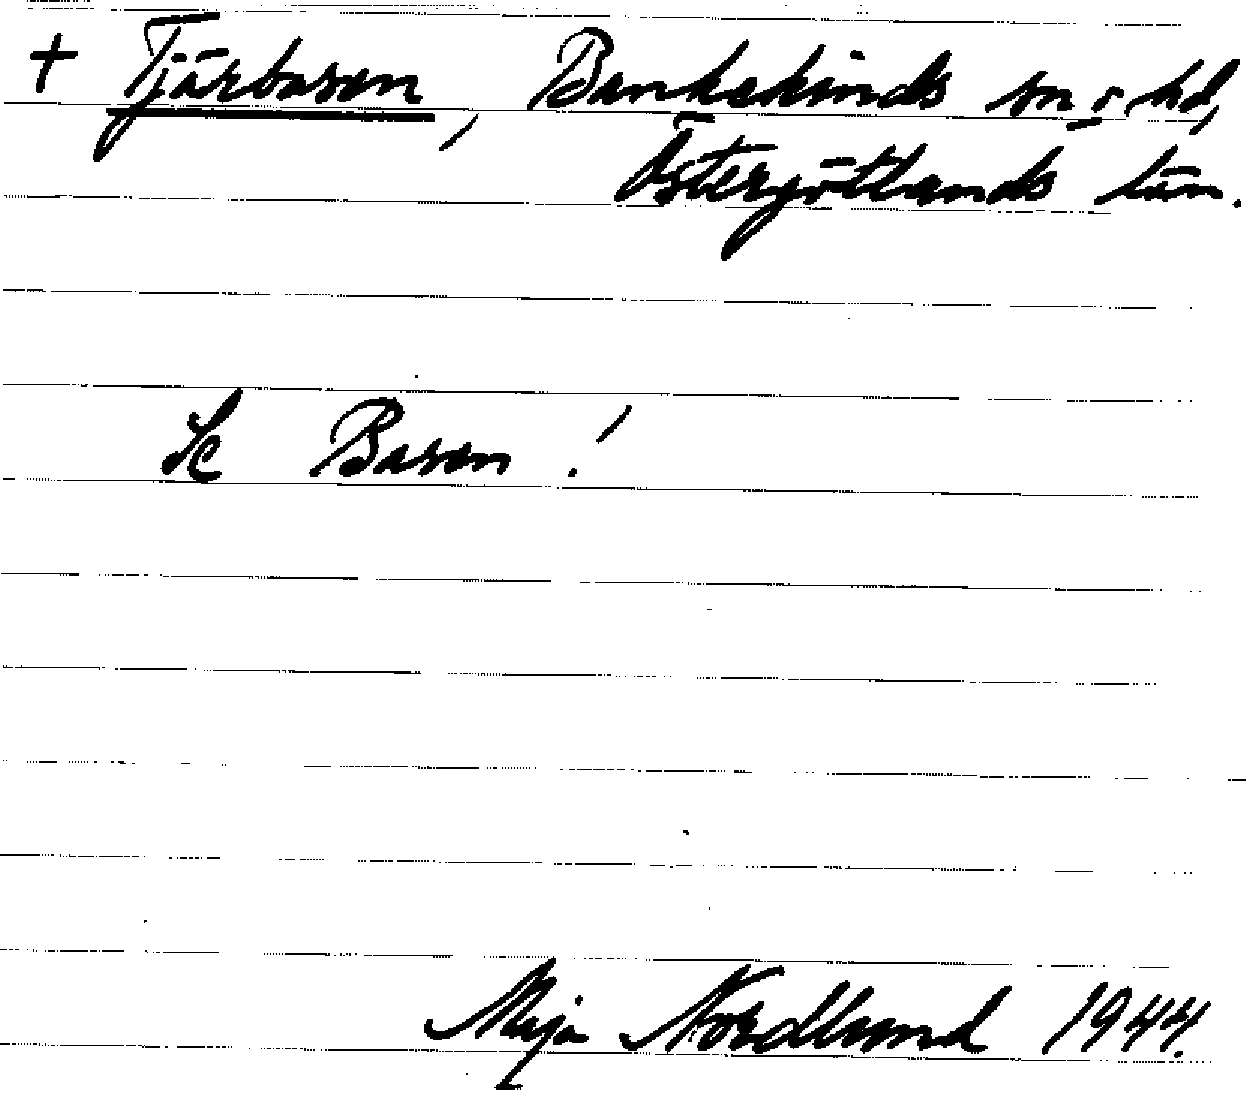 + Tjärbasen, Bankekinds sn o. hd,
Östergötlands län.
Se Basen!
Maja Nordlund 1944.